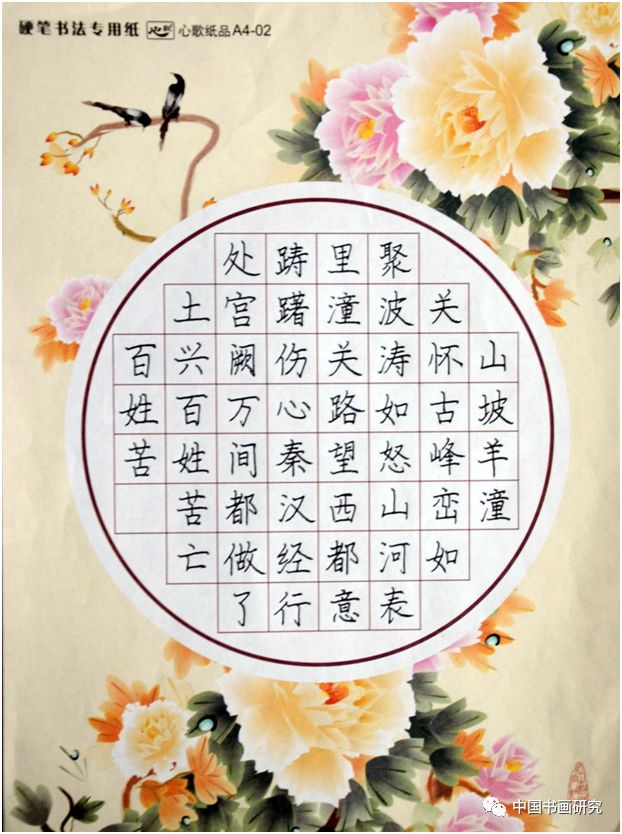 硬笔书法专用纸 心歌 心歌纸品A4-02
山坡羊潼
关怀古峰峦如
聚波涛如怒山河表
里潼关路望西都意
踌躇伤心秦汉经行
处宫阙万间都做了
土兴百姓苦亡
百姓苦
中国书画研究